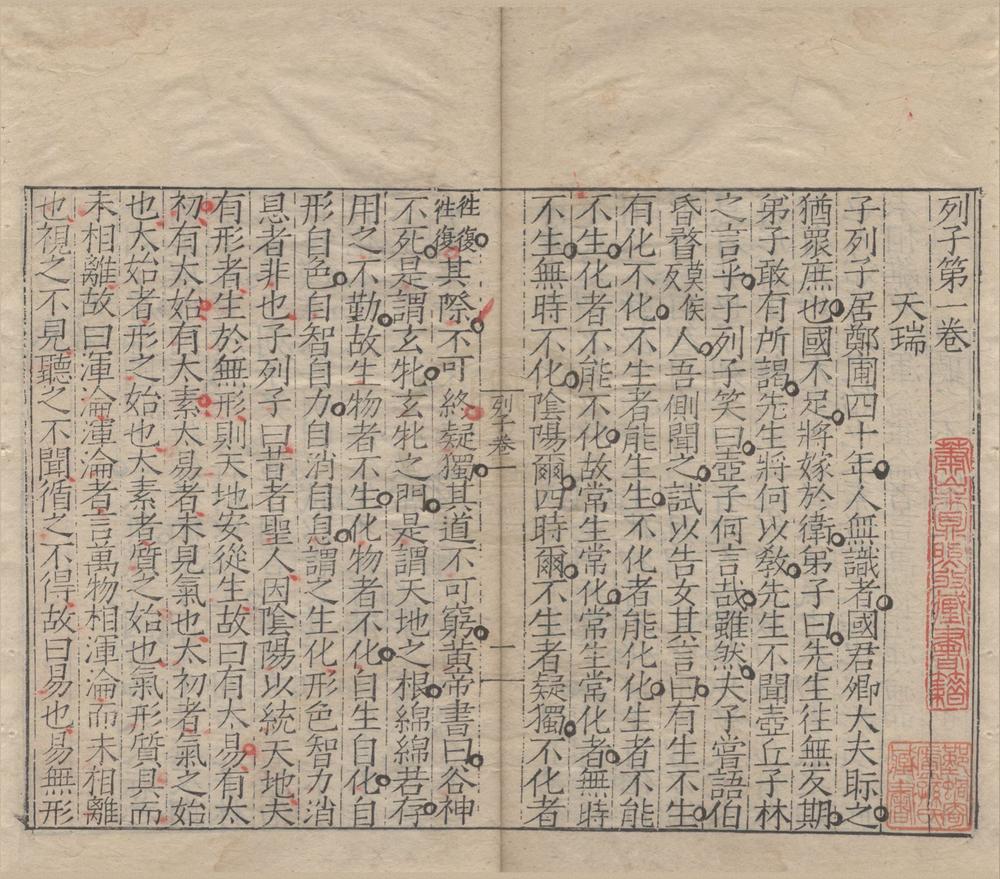 列子第一卷
天瑞
子列子居鄭圃四十年人無識者國君卿大夫眎之
猶眾庶也國不足將嫁於衛弟子曰先生往無反期
弟子敢有所謁先生將何以教先生不聞壺丘子林
之言乎子列子笑曰壺子何言哉雖然夫子嘗語伯
昏瞀莫侯反人吾側聞之試以告女其言曰有生不生
有化不化不生者能生生不化者能化化生者不能
不生化者不能不化故常生常化常生常化者無時
不生無時不化陰陽爾四時爾不生者疑獨不化者
列子卷一
一
往復往復其際不可終疑獨其道不可窮黃帝書曰谷神
不死是謂玄牝玄牝之門是謂天地之根綿綿若存
用之不勤故生物者不生化物者不化自生自化自
形自色自智自力自消自息謂之生化形色智力消
息者非也子列子曰昔者聖人因陰陽以統天地夫
有形者生於無形則天地安從生故曰有太易有太
初有太始有太素太易者未見氣也太初者氣之始
也太始者形之始也太素者質之始也氣形質具而
未相離故曰渾淪渾淪者言萬物相渾淪而未相離
也視之不見聽之不聞循之不得故曰易也易無形